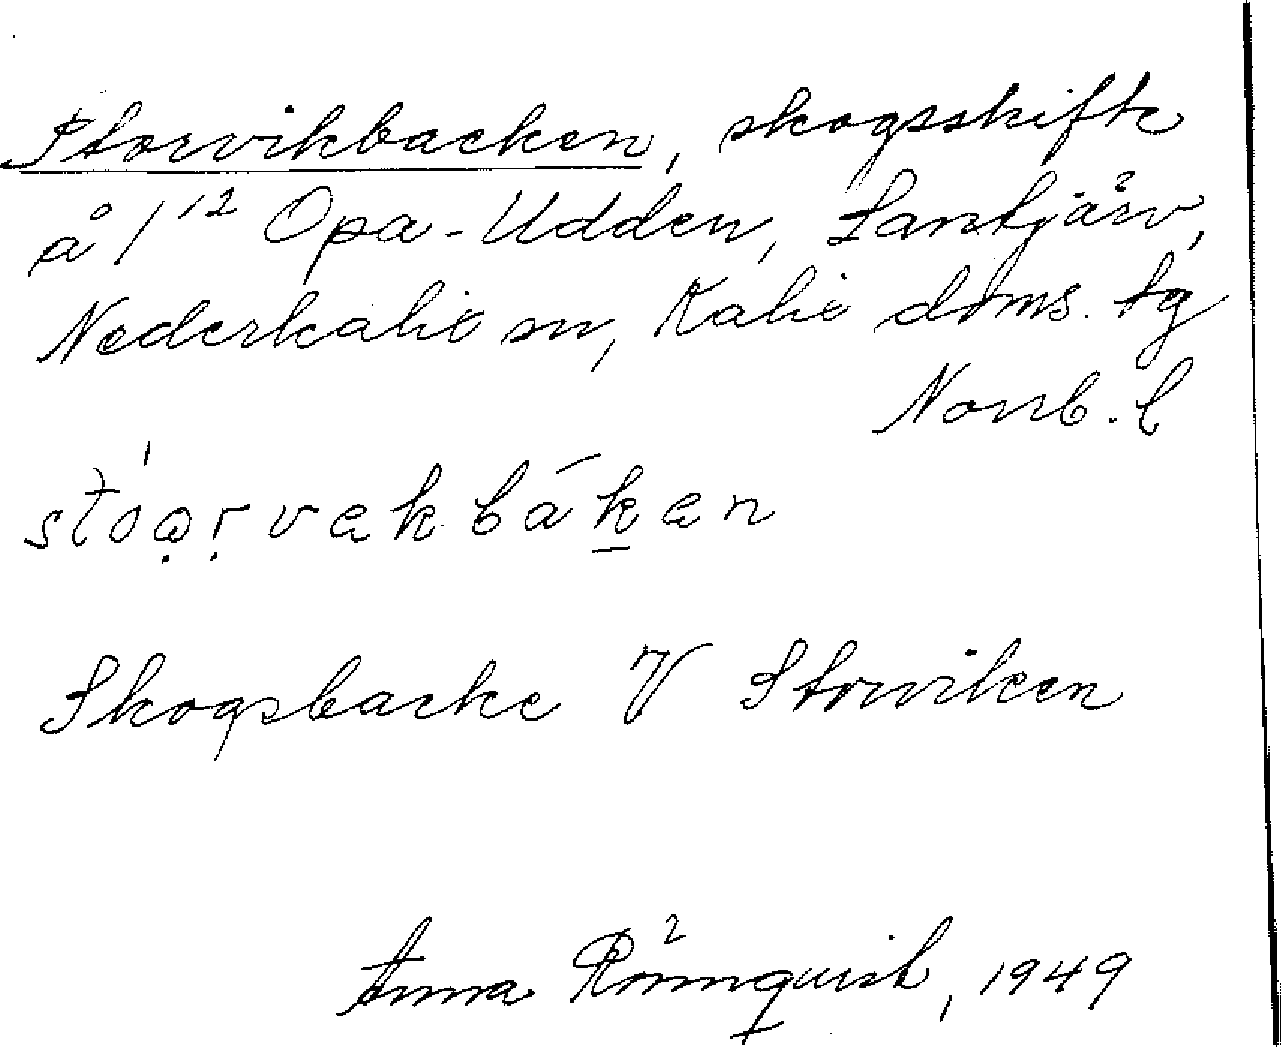 Storvikbacken, skogsskifte
å 1¹² Opa-Udden, Lantjärv,
Nederkalix sn, Kalix doms. tg
Norrb. l
Skogsbacke V Storviken
Anna Rönnquist, 1949